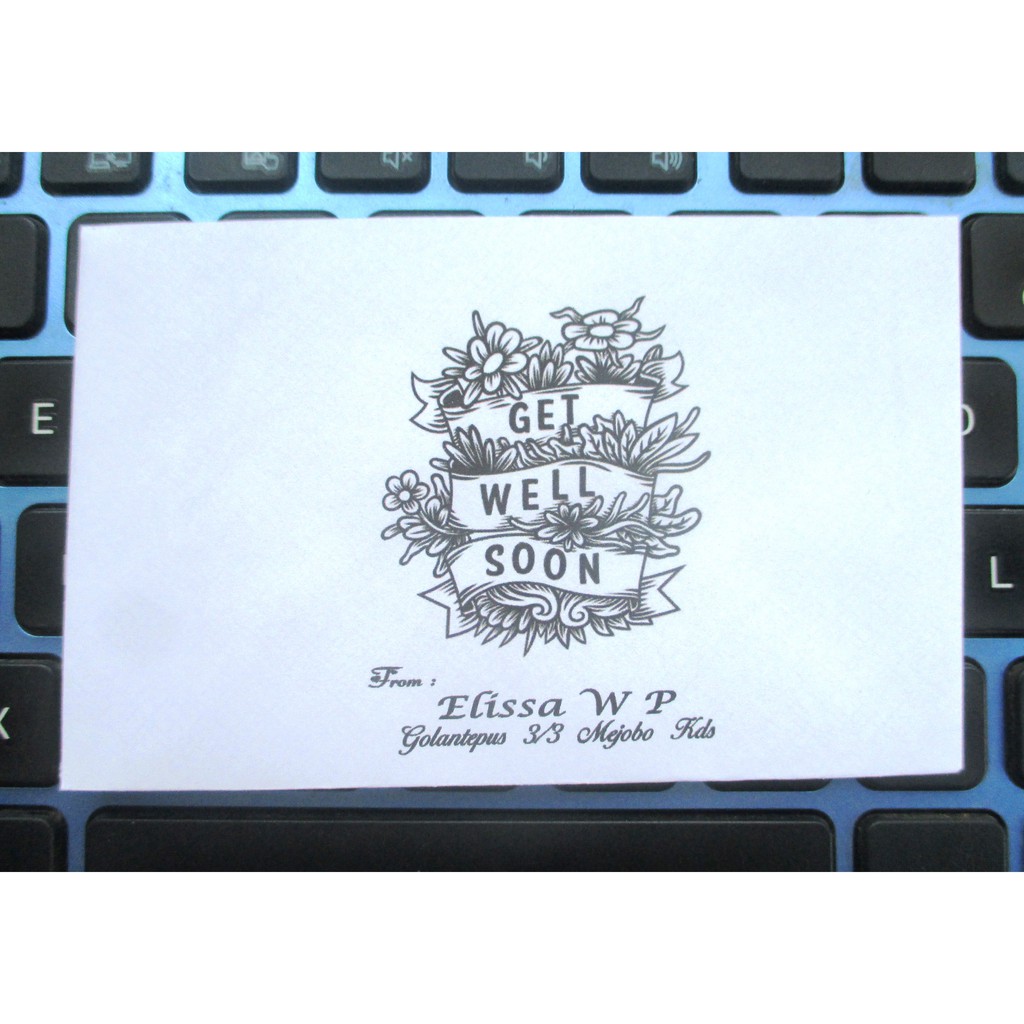 E
O
L
X
GET
WELL
SOON
From :
Elissa W P
Golantepus 3/3 Mejobo Kds